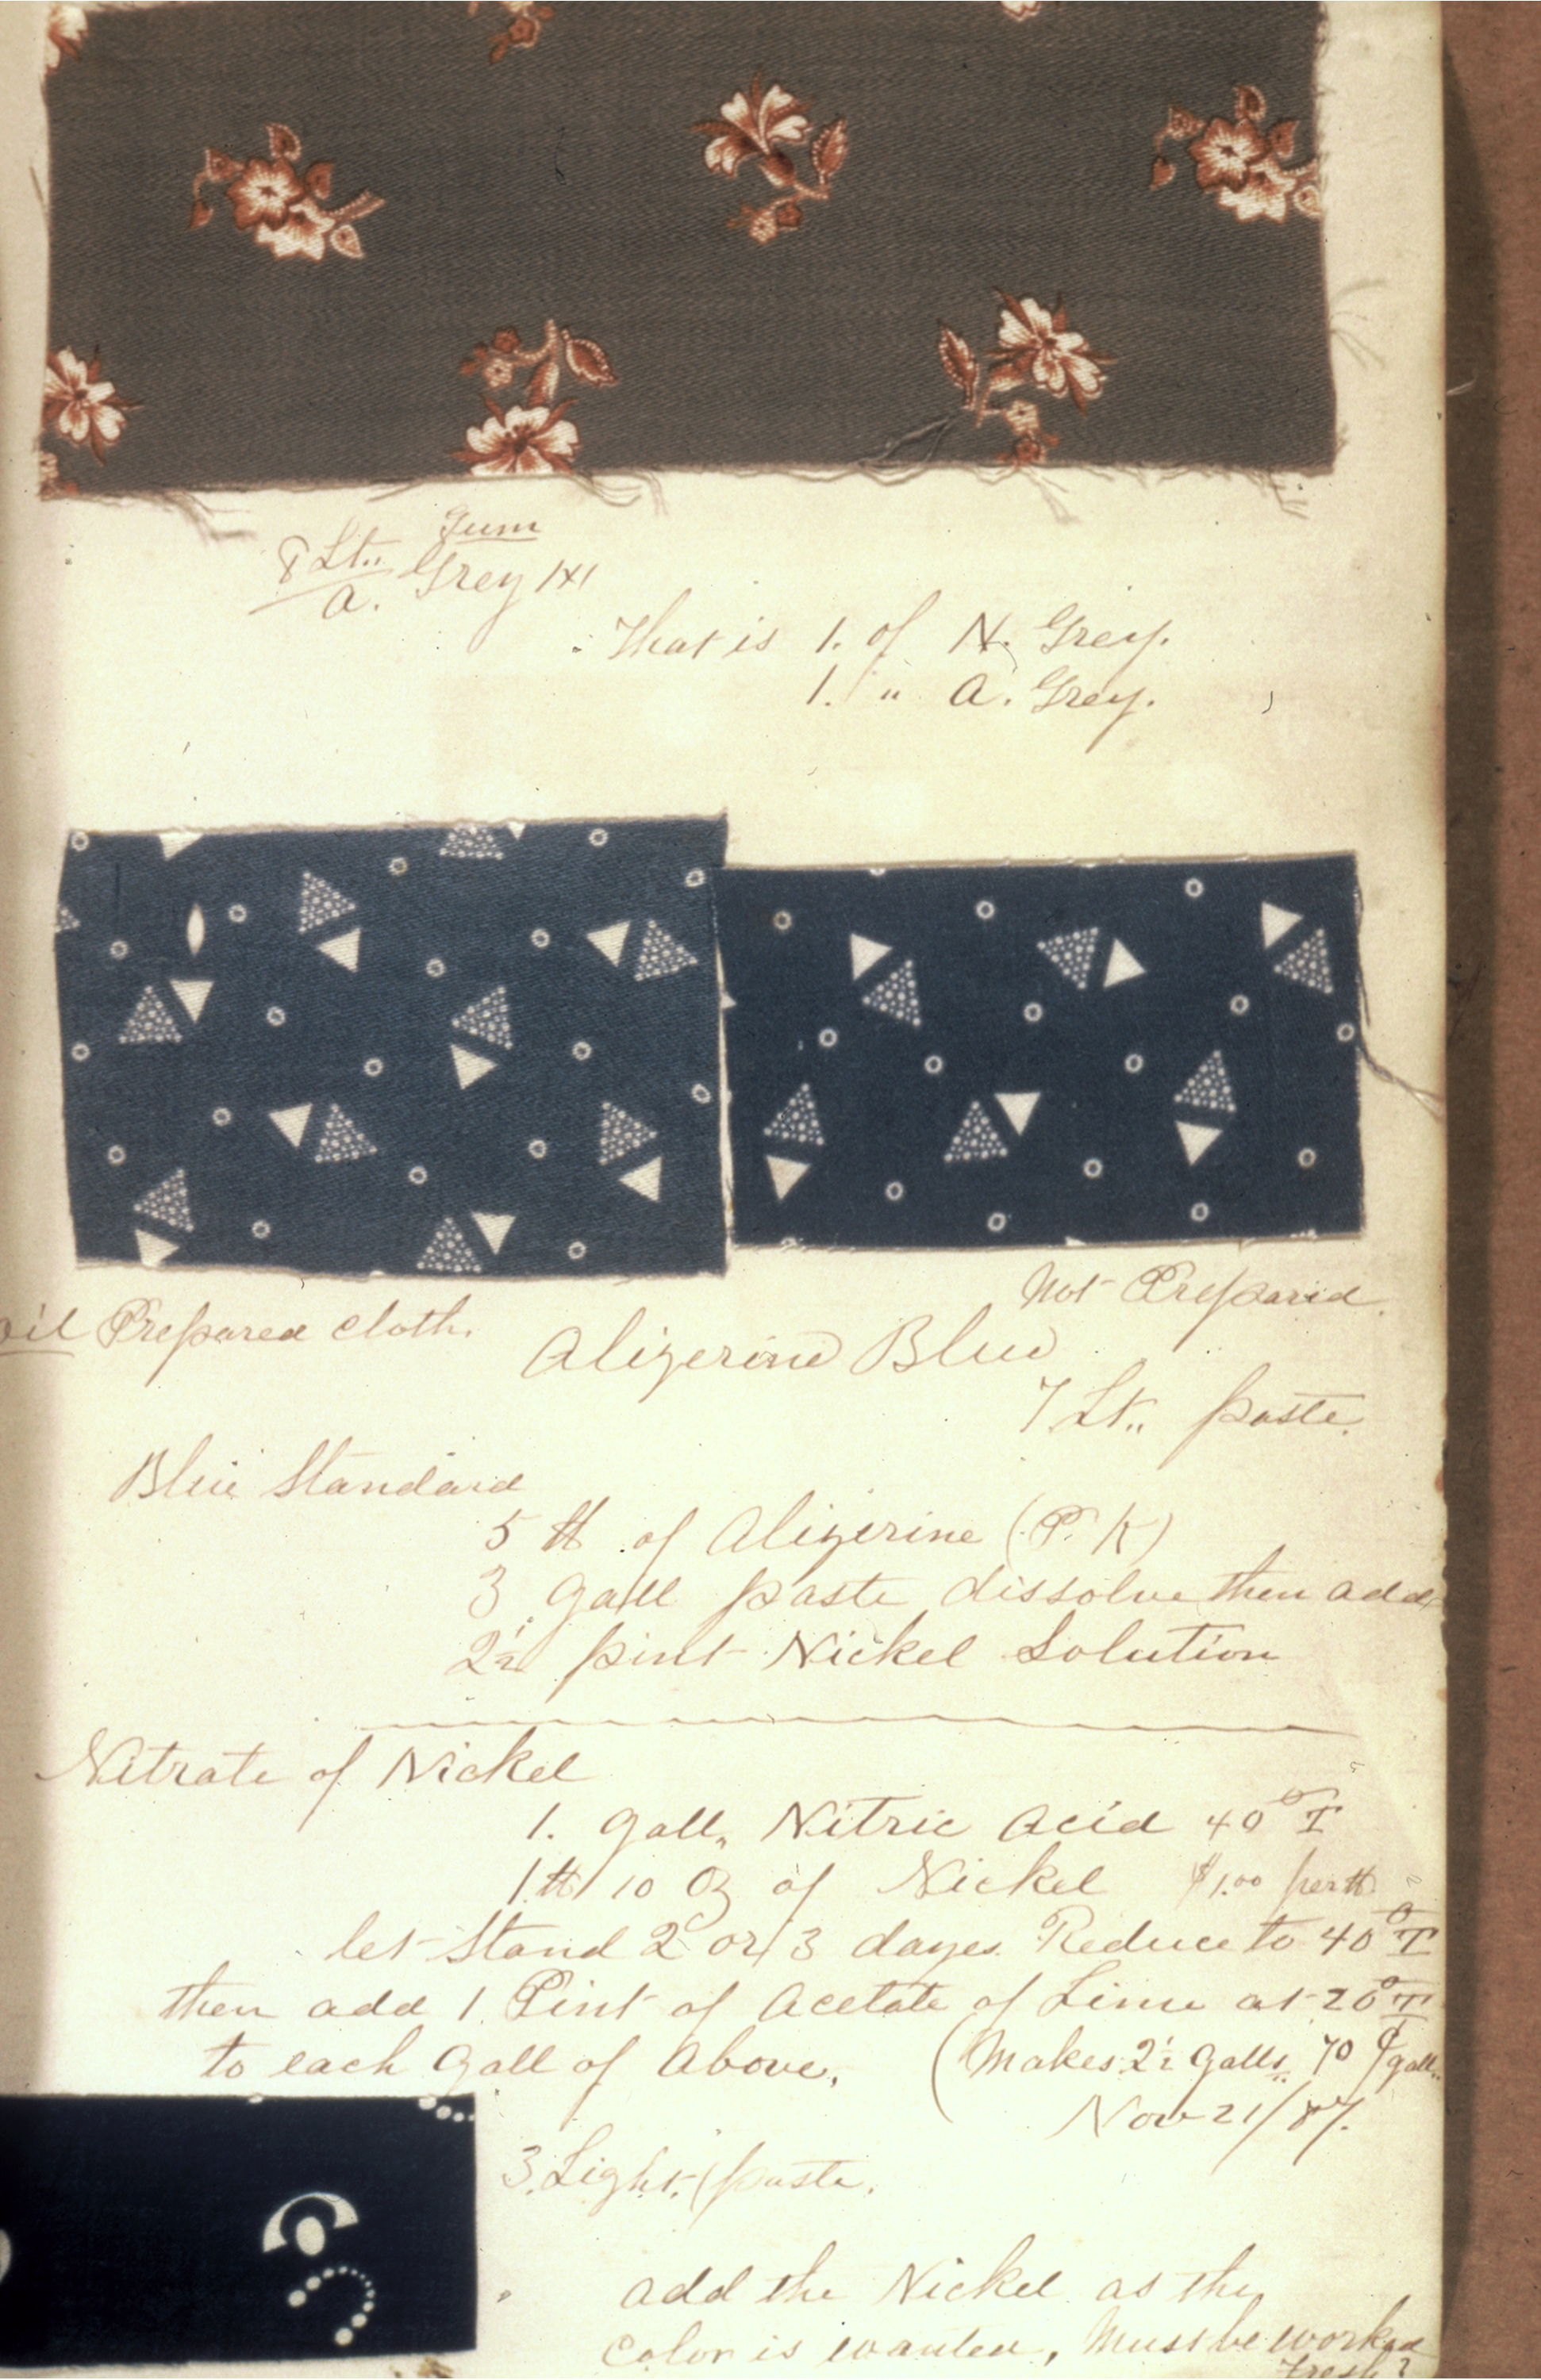 Gum
8 Lt.. Grey 1x1
a.
That is 1. of N. Grey.
1. " a. Grey.
Not Prepared.
oil Prepared cloth.
Alizerine Blue
7 Lt.. paste.
Blue Standard
5 ℔ of Alizerine (P. K)
3 Gall paste dissolve then add
2½ pint Nickel Solution
Nitrate of Nickel
1. Gall, Nitric Acid 40° T
1 ℔ 10 Oz of Nickel $1.00 per ℔
let Stand 2 or 3 dayes. Reduce to 40° T
then add 1 Pint of Acetate of Lime at 20° T
to each Gall of Above,
(Makes 2½ Galls, 70 ¢ gall.
Nov 21/87.
3. Light (paste.
add the Nickel as the
Color is wanted, Must be worked
fresh